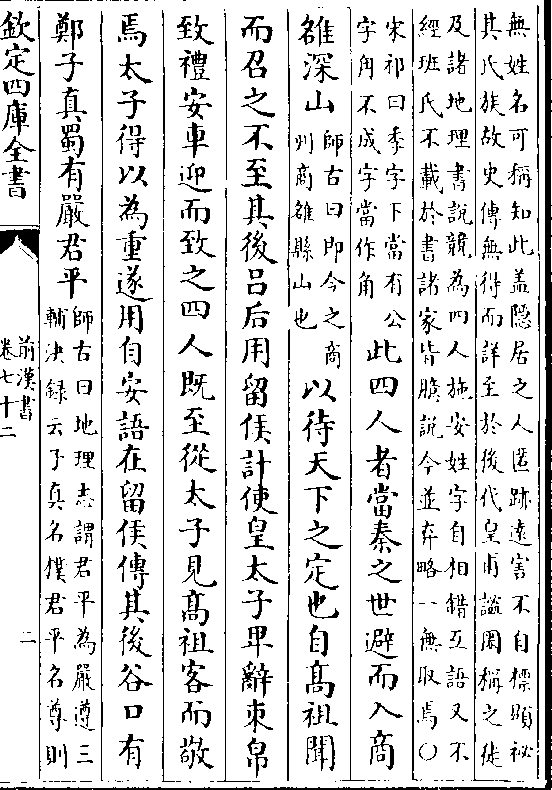 無姓名可稱知此盖隠居之人匿跡逺害不自標顯祕
其氏族故史傳無得而詳至於後代皇甫謐圏稱之徒
及諸地理書說競為四人施安姓字自相錯互語又不
經班氏不載於書諸家皆臆説今並弃略一無取焉○
宋祁曰季字下當有公
字角不成字當作角
此四人者當秦之世避而入商
雒深山
師古曰即今之商
州商雒縣山也
以待天下之定也自髙祖聞
而召之不至其後吕后用留侯計使皇太子卑辭束帛
致禮安車迎而致之四人既至從太子見髙祖客而敬
焉太子得以為重遂用自安語在留侯傳其後谷口有
鄭子真蜀有嚴君平
師古曰地理志謂君平為嚴遵三
輔決録云子真名樸君平名尊則
欽定四庫全書
前漢書
卷七十二
二